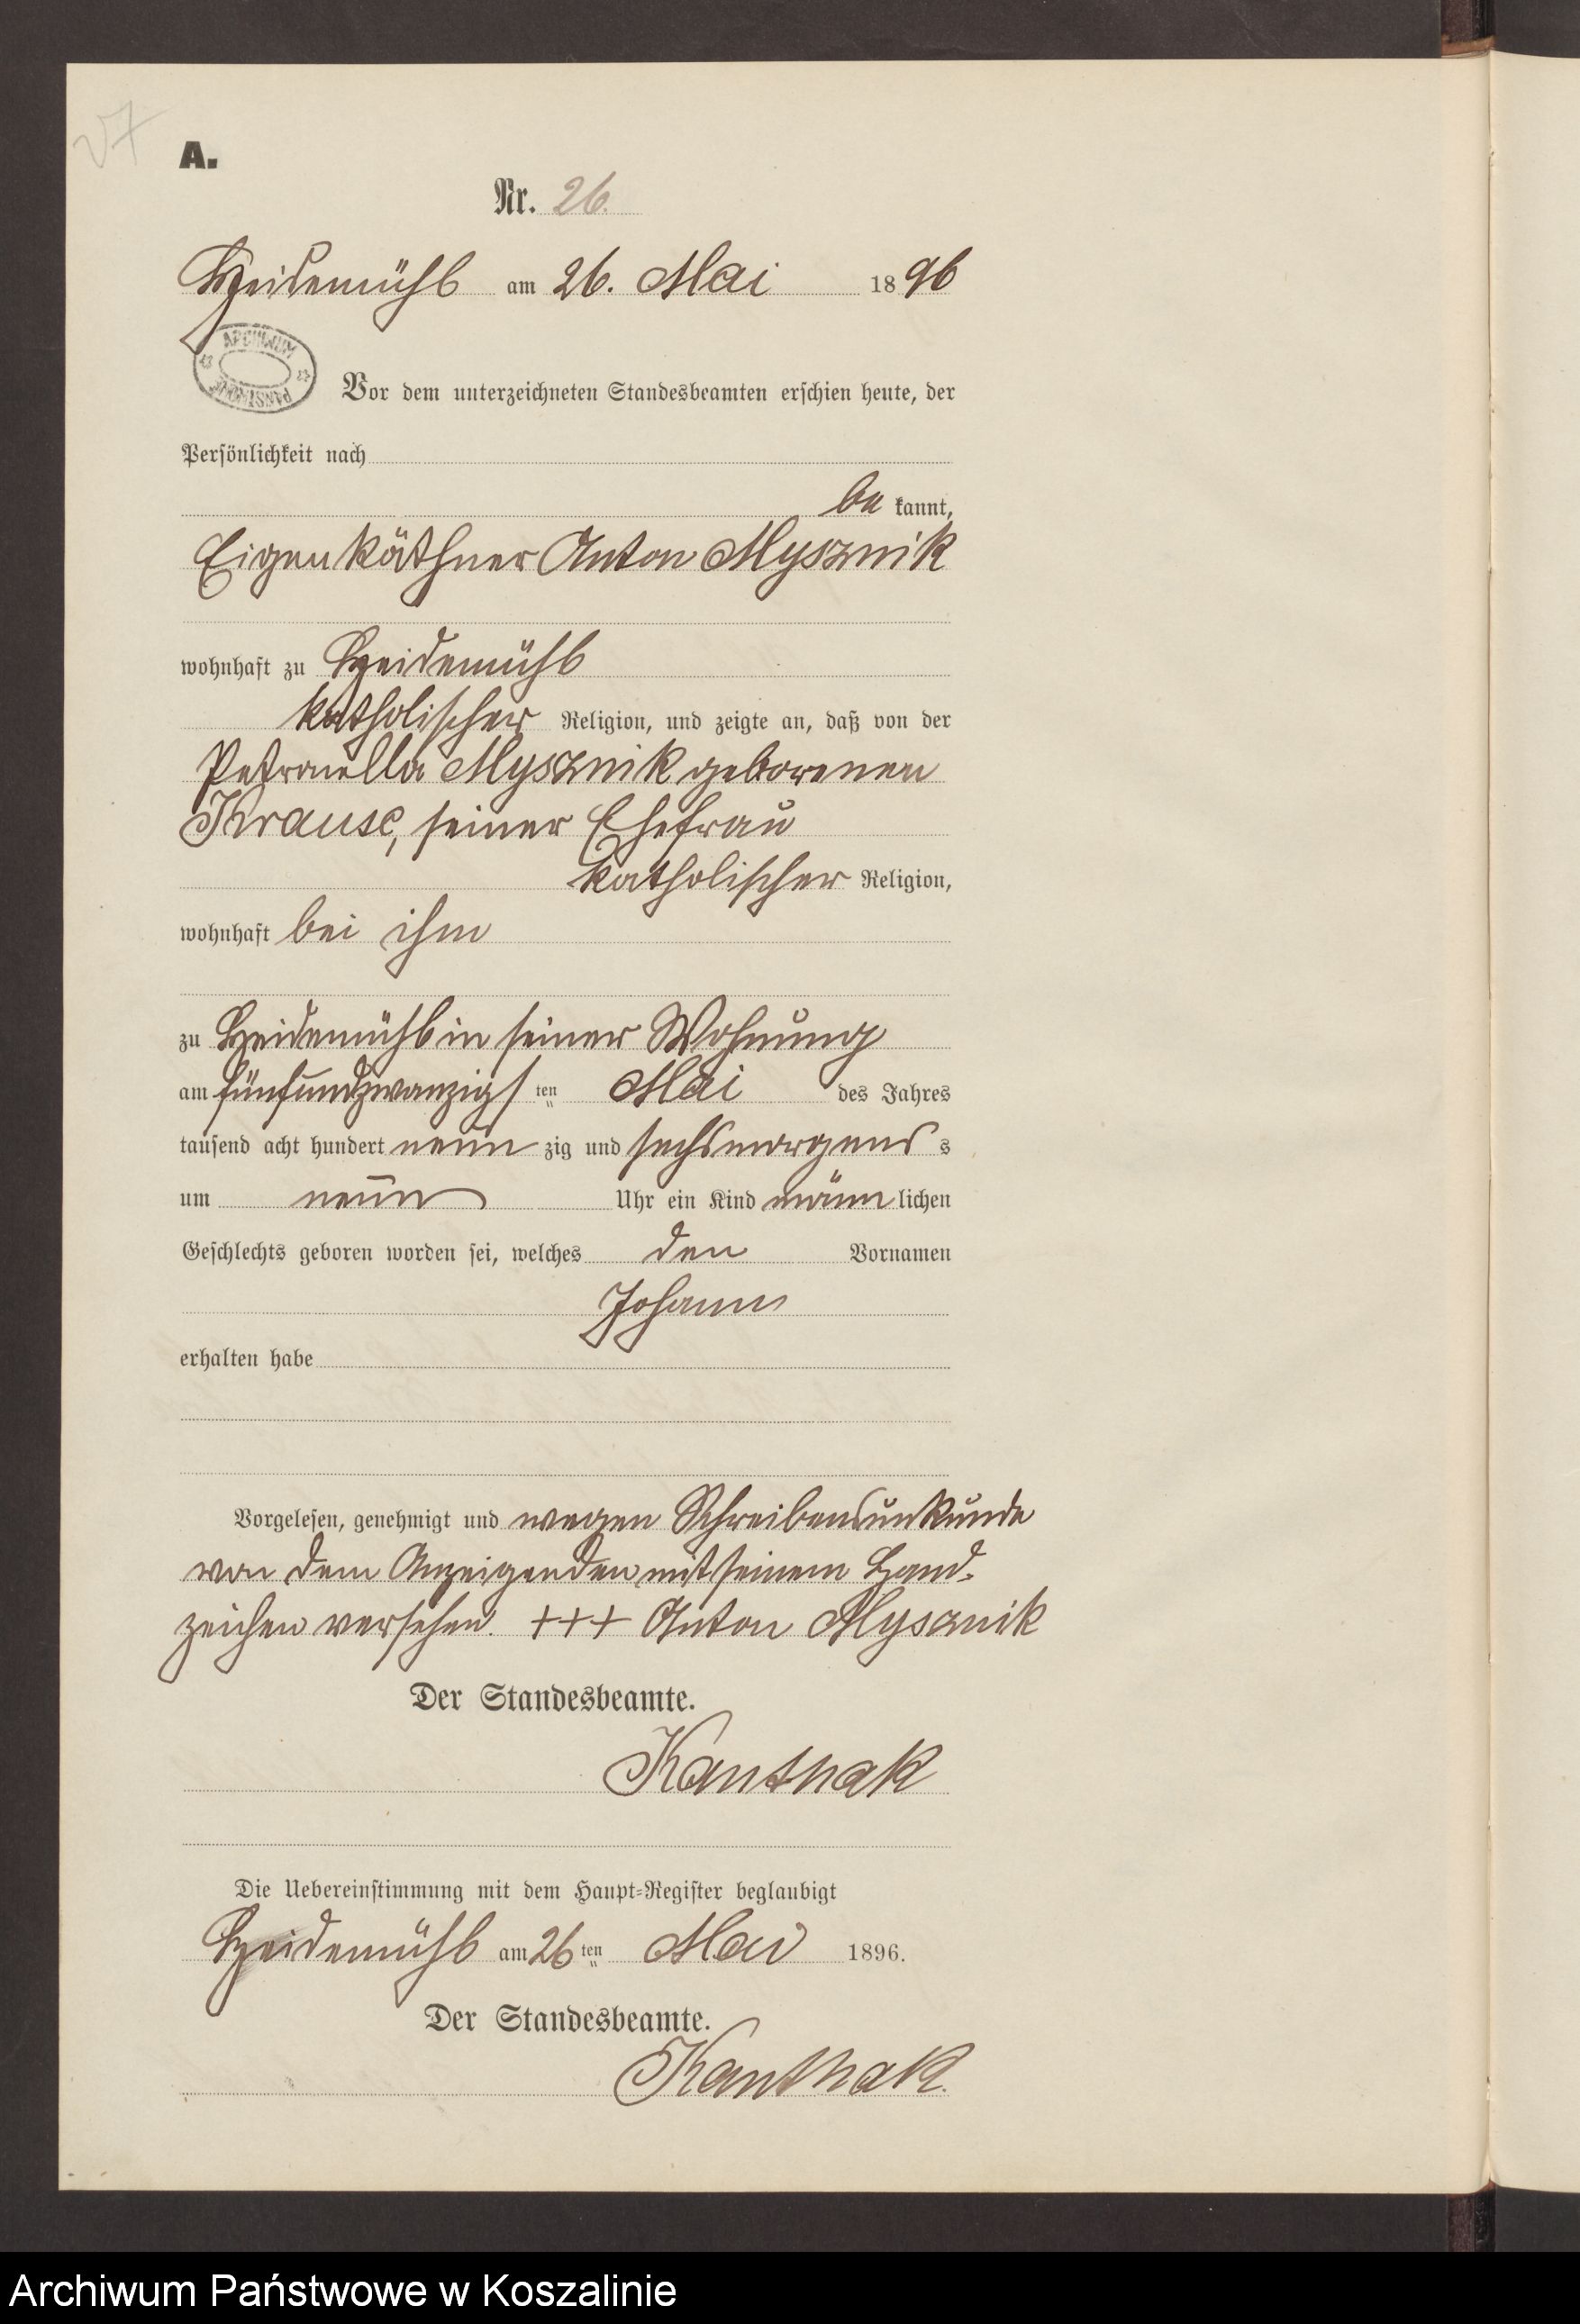 27
A.
Nr. 26.
Heidemühl am 26. Mai 1896
ARCHIWUM
PAŃSTWOWE
Vor dem unterzeichneten Standesbeamten erschien heute, der
Persönlichkeit nach
be kannt,
Eigenkäthner Anton Mysznik
wohnhaft zu Heidemühl
katholischer Religion, und zeigte an, daß von der
Petronella Mysznik geborenen
Krause, seiner Ehefrau
katholischer Religion,
wohnhaft bei ihm
zu Heidemühl in seiner Wohnung
am fünfundzwanzigsten Mai des Jahres
tausend acht hundert neunzig und sechs morgens s
um neun Uhr ein Kind männlichen
Geschlechts geboren worden sei, welches den Vornamen
Johann
erhalten habe
Vorgelesen, genehmigt und wegen Schreibensunkunde
von dem Anzeigenden mit seinem Hand-
zeichen versehen. +++ Anton Mysznik
Der Standesbeamte.
Kanthak
Die Uebereinstimmung mit dem Haupt-Register beglaubigt
Heidemühl am 26ten Mai 1896.
Der Standesbeamte.
Kanthak.
Archiwum Państwowe w Koszalinie